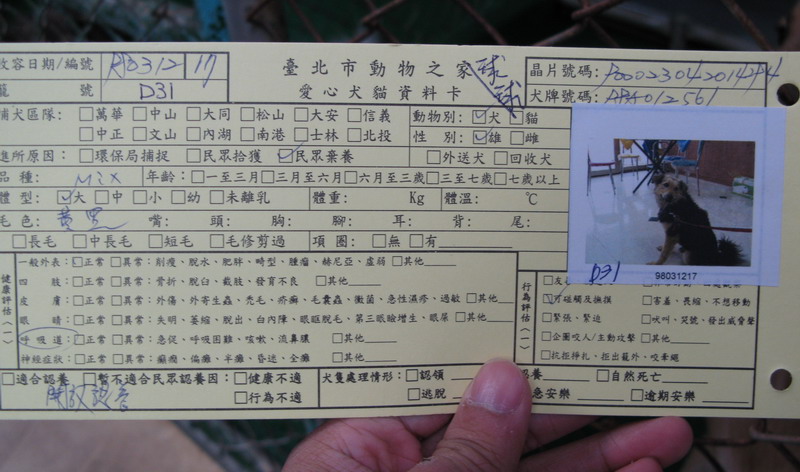 收容日期/編號 R0312 17 臺北市動物之家 球球 晶片號碼:
籠 號 D31 愛心犬貓資料卡 犬牌號碼: ABA012561
捕犬區隊: □萬華 □中山 □大同 □松山 □大安 □信義 動物別: ☑犬 □貓
□中正 □文山 □內湖 □南港 □士林 □北投 性 別: ☑雄 □雌
進所原因: □環保局捕捉 □民眾拾獲 ☑民眾棄養 □外送犬 □回收犬
品種: Mix 年齡: □一至三月 □三月至六月 □六月至三歲 □三至七歲 □七歲以上
體 型: ☑大 □中 □小 □幼 □未離乳 體重: Kg 體溫: ℃
毛 色: 黃黑 嘴: 頭: 胸: 腳: 耳: 背: 尾:
□長毛 □中長毛 □短毛 □毛修剪過 項圈: □無 □有
健康評估(一)
一般外表: □正常 □異常: 削瘦、脫水、肥胖、畸型、腫瘤、赫尼亞、虛弱 □其他
四 肢: □正常 □異常: 骨折、脫臼、截肢、發育不良 □其他
皮 膚: □正常 □異常: 外傷、外寄生蟲、禿毛、疥癬、毛囊蟲、黴菌、急性濕疹、過敏 □其他
眼 睛: □正常 □異常: 失明、萎縮、脫出、白內障、眼眶脫毛、第三眼瞼增生、眼屎 □其他
呼吸道: □正常 □異常: 急促、呼吸困難、咳嗽、流鼻膿 □其他
神經症狀: □正常 □異常: 癲癇、偏癱、半癱、昏迷、全癱 □其他
行為評估(一)
□友
☑可碰觸及撫摸 □害羞、畏縮、不想移動
□緊張、緊迫 □吠叫、哭號、發出威脅聲
□企圖咬人/主動攻擊 □其他
□抗拒掙扎、拒出籠外、咬牽繩
D31
98031217
□適合認養 □暫不適合民眾認養因: □健康不適 犬隻處理情形: □認領 認養 □自然死亡
開放認養 □行為不適 □逃脫 急安樂 □逾期安樂